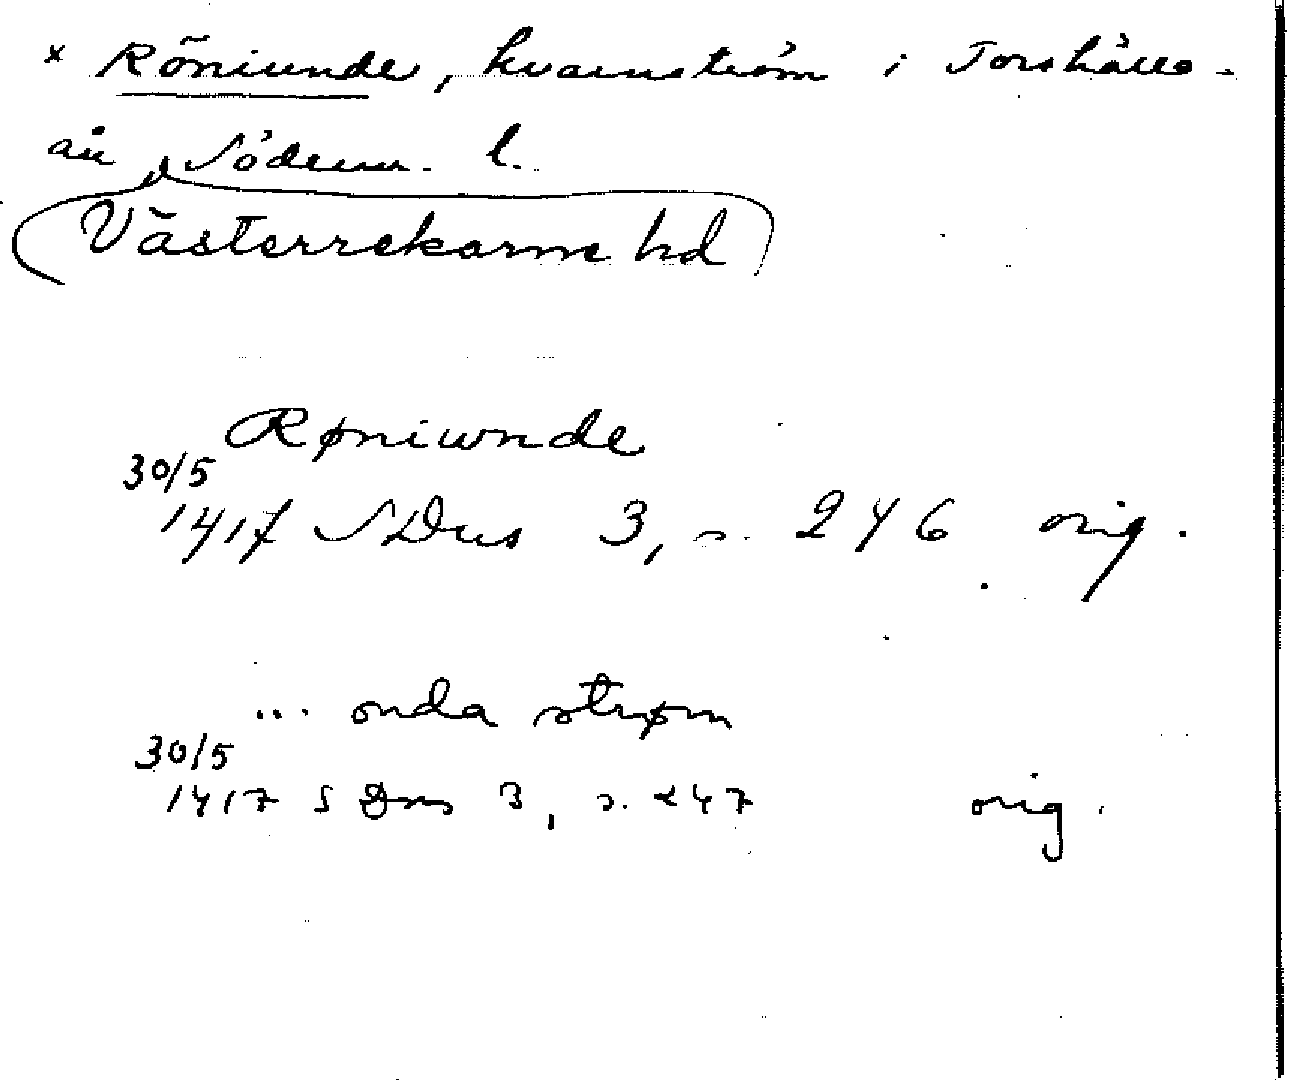 * Röniunde, kvarnström i Torshälla-
ån, Söderm. l.
Västerrekarne hd
Røniwnde
30/5
1417 SDns 3, s. 246 orig.
... onda strøm
30/5
1417 SDns 3, s. 247 orig.